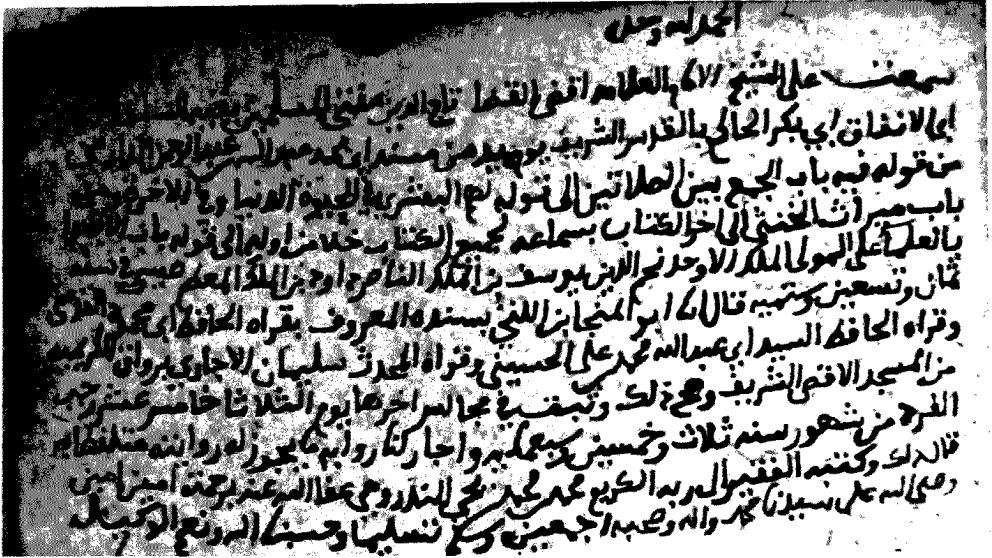 الحمد لله وحده
سمعت على الشيخ الامام العلامه اقضى القضا تاج الدين مفتي المسلمين
ابى الانفاق ابي بكر الحالى بالقدس الشريف من مسند ابى محمد عبد الله بن عبد الرحمن الدارمى
من قوله فيه باب الجمع بين الصلاتين الى قوله لهم البشرى في الحيوة الدنيا وفي الاخرة ومن
باب ميراث الخنثى الى اخر الكتاب بسماعه لجميع الكتاب خلا من اوله الى قوله باب
بالعلم على المولى الملك الاوحد نجم الدين يوسف بن الملك الناصر داود بن الملك المعظم عيسى في سنه
ثمان وتسعين وستميه قال انا ابو المنجا بن اللتي بسنده المعروف بقراه الحافظ ابى محمود
وقراه الحافظ السيد ابي عبد الله محمد بن على الحسيني وقراه المحدث سليمان
من المسجد الاقصى الشريف وصح ذلك وثبت في مجالس اخرها يوم الثلاثا خامس عشر رجب
الفرد من شهور سنه ثلاث وخمسين وسبعمايه واجاز لنا روايه ما يجوز له روايته متلفظا
قال ذلك وكتبه الفقير الى ربه الكريم محمد بن محمد بن يحيى عفا الله عنه برحمته امين امين
وصلى الله على سيدنا محمد واله وصحبه اجمعين وسلم تسليما وحسبنا الله ونعم الوكيل